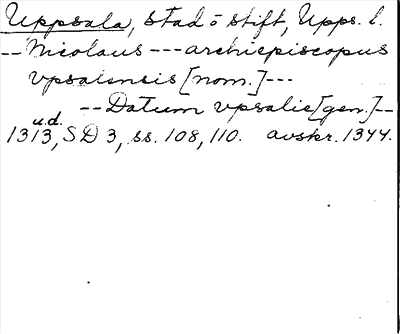 Uppsala, stad o stift, Upps. l.
-- Nicolaus --- archiepiscopus
vpsalensis [nom.] ---
-- Datum vpsalie [gen.] --
u.d.
1313, SD 3, ss. 108, 110. avskr. 1344.